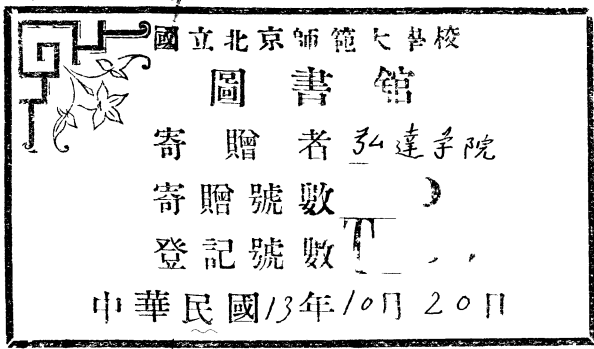 國立北京師範大學校
圖書館
寄贈者 弘達学院
寄贈號數
登記號數 T
中華民國13年10月20日